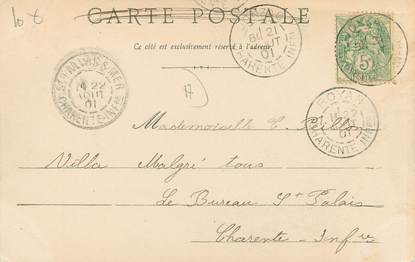 10 €
CARTE POSTALE
Ce côté est exclusivement réservé à l'adresse.
ST PALAIS S MER
22
AOUT
01
CHARENTE-INFRE
21
AOUT
01
CHARENTE-INFRE
5c
ROYAN
21
01
CHARENTE-INFRE
Mademoiselle C.
Villa Malgré tous
Le Bureau St Palais
Charente-Infre